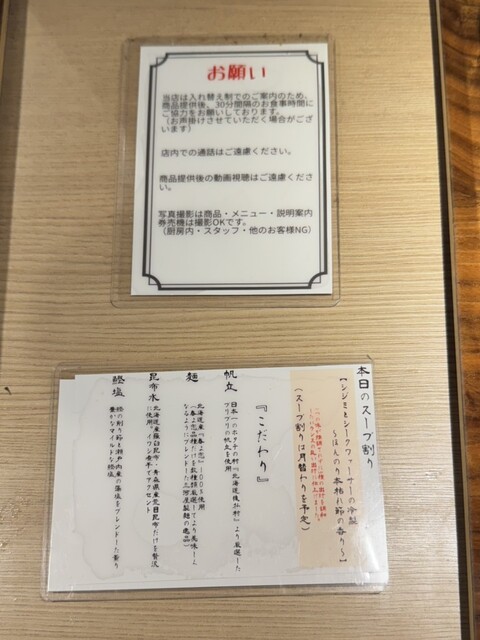 お願い
当店は入れ替え制でのご案内のため、
商品提供後、30分間隔のお食事時間に
ご協力をお願いしております。
（お声掛けさせていただく場合がござ
います）
店内での通話はご遠慮ください。
商品提供後の動画視聴はご遠慮くださ
い。
写真撮影は商品・メニュー・説明案内
券売機は撮影OKです。
（厨房内・スタッフ・他のお客様NG）
本日のスープ割り
【シジミとシークワーサーの冷製
～ほんのり本枯れ節の香り～】
(スープ割りは月替わりを予定)
『こだわり』
帆立
日本一のホタテの村『北海道猿払村』より厳選した
プリプリの帆立を使用
麺
北海道産『春よ恋』100%使用
昆布水
北海道産羅臼昆布・青森県産荒目昆布だけを贅沢
に使用。イワシ煮干でアクセント
鰹塩
鰹の削り節と瀬戸内産の藻塩をブレンドした香り
豊かなマイルドな鰹塩